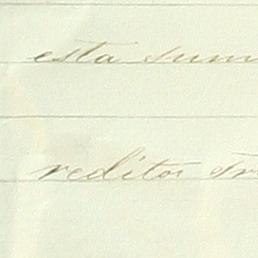 esta sum
reditor Fr